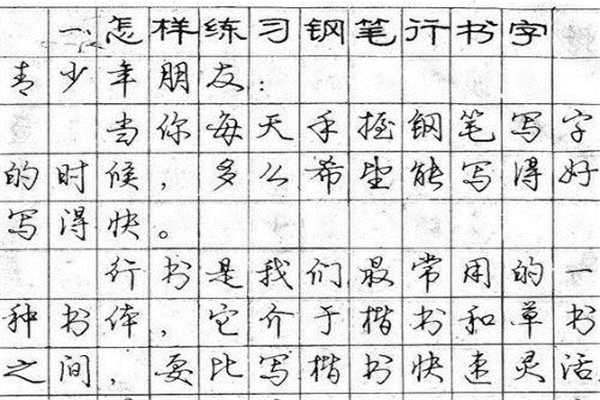 一、怎样练习钢笔行书字
青少年朋友：
当你每天手握钢笔写字
的时候，多么希望能写得好
写得快。
行书是我们最常用的一
种书体，它介于楷书和草书
之间，要比写楷书快速灵活